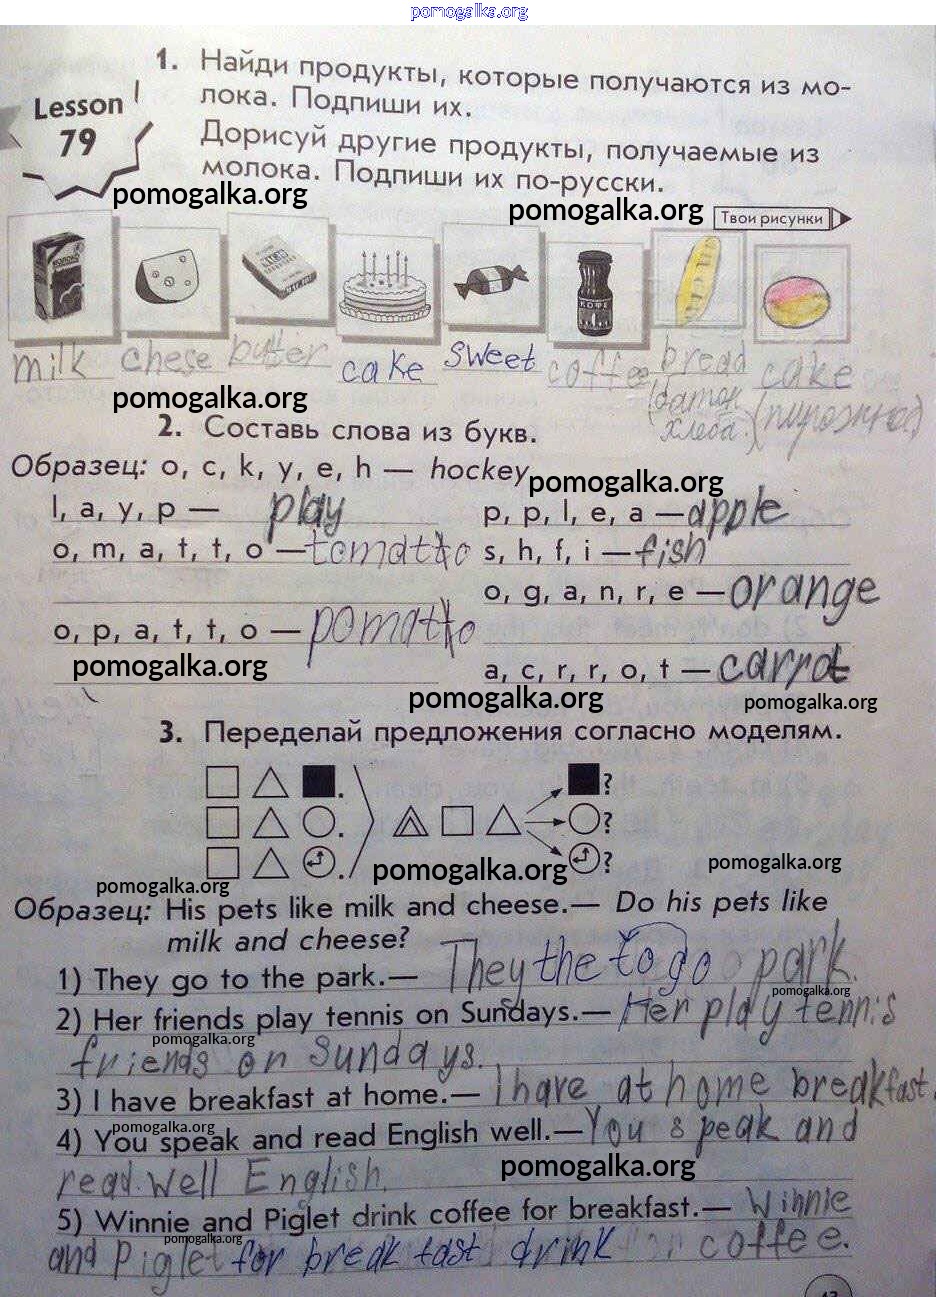 pomogalka.org
1. Найди продукты, которые получаются из мо-
лока. Подпиши их.
Lesson
79
Дорисуй другие продукты, получаемые из
молока. Подпиши их по-русски.
pomogalka.org
pomogalka.org
Твои рисунки
МОЛОКО
КОФЕ
milk chese butter cake sweet coffee bread cake
(батон хлеба.) (пирожное)
pomogalka.org
2. Составь слова из букв.
Образец: o, c, k, y, e, h — hockey
pomogalka.org
l, a, y, p — play
p, p, l, e, a — apple
o, m, a, t, t, o — tomatto
s, h, f, i — fish
o, g, a, n, r, e — orange
o, p, a, t, t, o — pomatto
pomogalka.org
a, c, r, r, o, t — carrot
pomogalka.org
pomogalka.org
3. Переделай предложения согласно моделям.
pomogalka.org
pomogalka.org
pomogalka.org
Образец: His pets like milk and cheese.— Do his pets like
milk and cheese?
1) They go to the park.— They the to go park.
pomogalka.org
2) Her friends play tennis on Sundays.— Her play tennis
pomogalka.org
friends on Sundays.
3) I have breakfast at home.— I have at home breakfast.
pomogalka.org
4) You speak and read English well.— You speak and
read well English.
pomogalka.org
5) Winnie and Piglet drink coffee for breakfast.— Winnie
pomogalka.org
and Piglet for breakfast drink coffee.